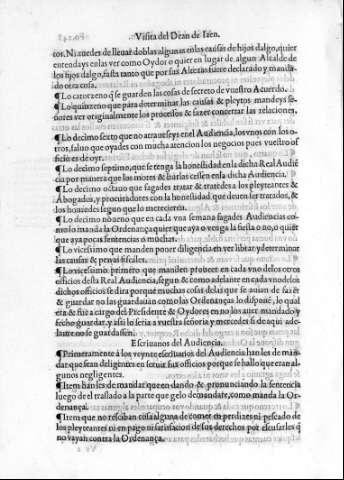 Visita del Dean de Iaen.
tos. Ni audes de lleuar doblas algunas en las causas de hijos dalgo, quier
entendays en las ver como Oydor o quier en lugar de algun Alcalde de
los hijos dalgo, fasta tanto que por sus Altezas fuere declarado y manda
do otra cosa.
¶Lo catorzeno q̃ se guarden las cosas de secreto de vuestro Acuerdo.
¶Lo quinzeno que para determinar las causas & pleytos mandeys se-
ñores ver originalmente los processos & fazer concertar las relaciones.
¶Lo decimo sexto que no atrauesseys en el Audiencia, los vnos con los o-
tros, saluo que oyades con mucha atencion los negocios pues vuestro of
ficio es de oyr.
¶Lo decimo septimo, que se tenga la honestidad en la dicha Real Audiē
cia por manera que las motes & burlas cessen en la dicha Audiencia.
¶Lo decimo octauo que fagades tratar & tratedes a los pleyteantes &
Abogados, y procuradores con la honestidad que deuen ser tratados, &
dos honrredes segun que lo meresciere.
¶Lo decimo noueno que en cada vna semana fagades Audiencias co-
mo lo manda la Ordenança quier que aya o venga la fiesta o no, o quier
que aya pocas sentencias o muchas.
¶Lo vicessimo que manden poner diligencia en ver librar y determinar
las causas & penas fiscales.
¶Lo vicessimo primero que manden proueer en cada vno de los otros
officios desta Real Audiencia, segun & como adelante en cada vno de los
dichos officios se dira porque muchas cosas delas que se auian de fazer
& guardar no las guardauan como las Ordenanças lo disponē, lo qual
era & fue a cargo del Presidente & Oydores en no los auer mandado y
fecho guardar, y assi lo seria a vuestra señoria y mercedes si de aqui ade-
lante no se guardassen.
Escriuanos del Audiencia.
¶Primeramente a los veynte escriuanos del Audiencia han les de man-
dar que sean diligentes en seruir sus officios porque se hallo que eran al-
gunos negligentes.
¶Item han les de mandar que en dando & pronunciando la sentencia
luego de el traslado a la parte que gelo demandare, como manda la Or-
denança.
¶Item que no resciban cosa alguna de comer en perdizes ni pescado de
los pleyteantes ni en pago ni satisfacion de sus derechos por escusarles q̃
no vayan contra la Ordenança.